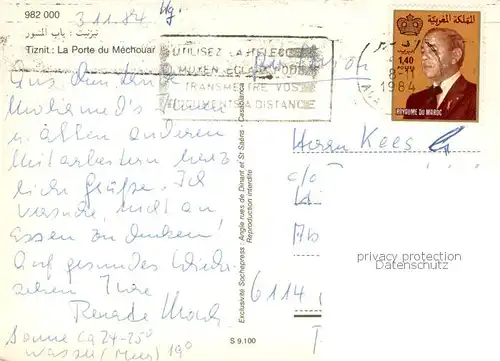 982 000
3.11.84
تيزنيت : باب المشور
Tiznit : La Porte du Méchouar
UTILISEZ LA TELECOPIE
MOYEN ECLAIR POUR
TRANSMETTRE VOS
DOCUMENTS A DISTANCE
المملكة المغربية
1,40
POSTES
ROYAUME DU MAROC
8-11
1984
Aus dem Lande
Mohamed's Ihnen
u. allen anderen
Mitarbeitern herz-
liche Grüße. Ich
versuche, nicht an
Essen zu denken!
Auf gesundes Wieder-
sehen Ihre
Renate
Sonne ca 24-25°
Wasser (Meer) 19°
Exclusivité Sochepress : Angle rues de Dinant et St Saëns - Casablanca
Reproduction interdite
S 9.100
Herrn Kees
c/o
6114
privacy protection
Datenschutz